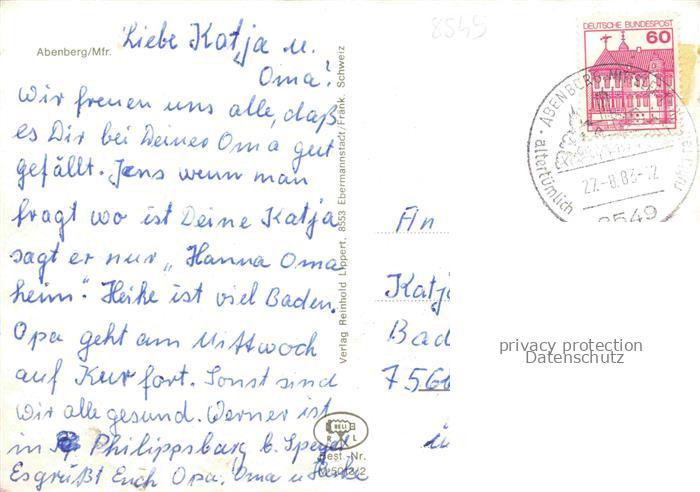 Abenberg/Mfr.
Liebe Katja u.
Oma!
Wir freuen uns alle, daß
es Dir bei Deiner Oma gut
gefällt. Jens wenn man
fragt wo ist Deine Katja
sagt er nur „Hanna Oma
heim". Heike ist viel Baden.
Opa geht am Mittwoch
auf Kur fort. Sonst sind
wir alle gesund. Werner ist
in Philippsburg b. Speyer
Es grüßt Euch Opa, Oma u. Heike
Verlag Reinhold Lippert, 8553 Ebermannstadt/Fränk. Schweiz
RELI
R L
Best.-Nr.
8549
DEUTSCHE BUNDESPOST
60
ABENBERG
altertümlich
22.-8.83-12
8549
An
Katja
Bad
756
in
privacy protection
Datenschutz